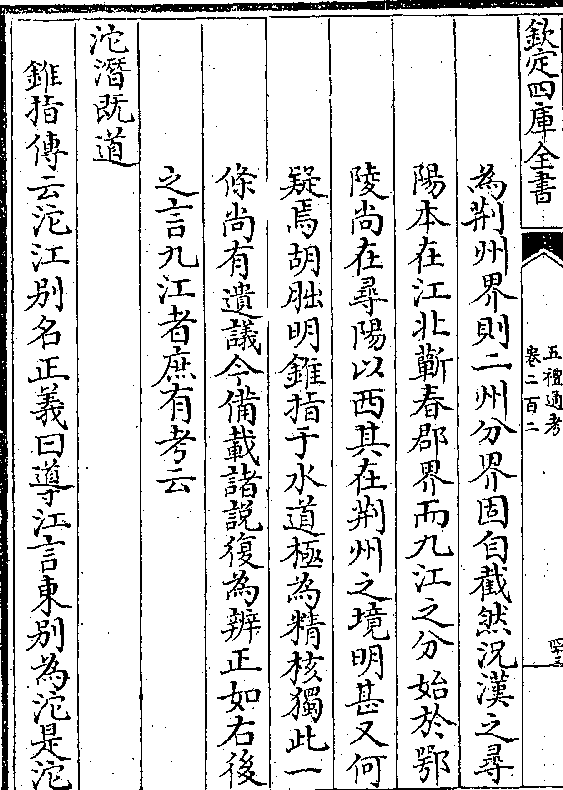 欽定四庫全書
五禮通考
卷二百二
四十三
為荆州界則二州分界固自截然況漢之尋
陽本在江北蘄春郡界而九江之分始於鄂
陵尚在尋陽以西其在荆州之境明甚又何
疑焉胡朏明錐指于水道極為精核獨此一
條尚有遺議今備載諸說復為辨正如右後
之言九江者庶有考云
沱潛既道
錐指傳云沱江别名正義曰導江言東别為沱是沱